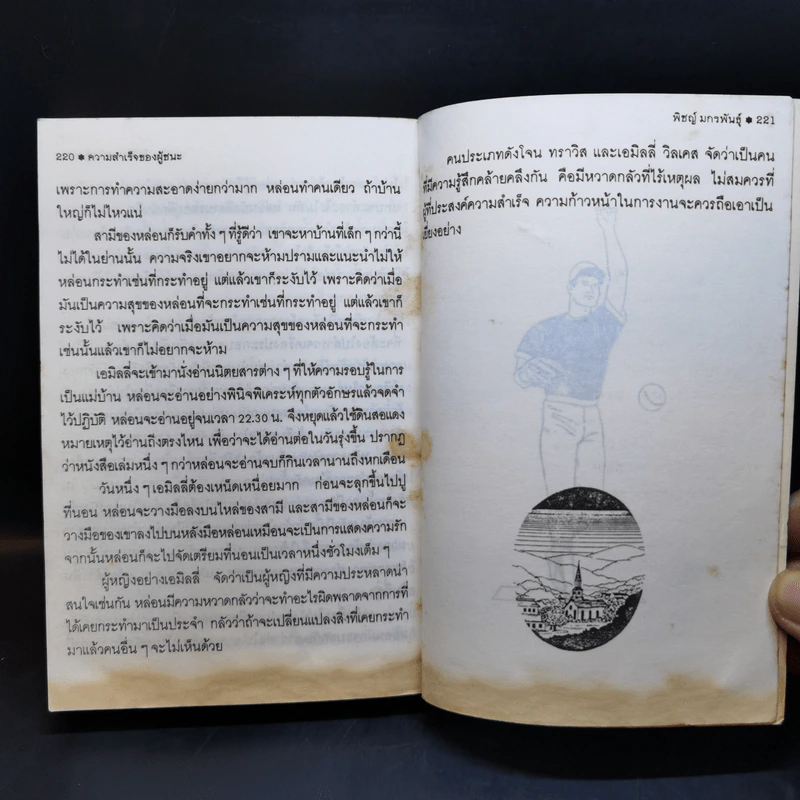 220 ✱ ความสำเร็จของผู้ชนะ
เพราะการทำความสะอาดง่ายกว่ามาก หล่อนทำคนเดียว ถ้าบ้าน
ใหญ่ก็ไม่ไหวแน่
สามีของหล่อนก็รับคำทั้ง ๆ ที่รู้ดีว่า เขาจะหาบ้านที่เล็ก ๆ กว่านี้
ไม่ได้ในย่านนั้น ความจริงเขาอยากจะห้ามปรามและแนะนำไม่ให้
หล่อนกระทำเช่นที่กระทำอยู่ แต่แล้วเขาก็ระงับไว้ เพราะคิดว่าเมื่อ
มันเป็นความสุขของหล่อนที่จะกระทำเช่นที่กระทำอยู่ แต่แล้วเขาก็
ระงับไว้ เพราะคิดว่าเมื่อมันเป็นความสุขของหล่อนที่จะกระทำ
เช่นนั้นแล้วเขาก็ไม่อยากจะห้าม
เอมิลลี่จะเข้ามานั่งอ่านนิตยสารต่าง ๆ ที่ให้ความรอบรู้ในการ
เป็นแม่บ้าน หล่อนจะอ่านอย่างพินิจพิเคระห์ทุกตัวอักษรแล้วจดจำ
ไว้ปฏิบัติ หล่อนจะอ่านอยู่จนเวลา 22.30 น. จึงหยุดแล้วใช้ดินสอแดง
หมายเหตุไว้อ่านถึงตรงไหน เพื่อว่าจะได้อ่านต่อในวันรุ่งขึ้น ปรากฏ
ว่าหนังสือเล่มหนึ่ง ๆ กว่าหล่อนจะอ่านจบก็กินเวลานานถึงหกเดือน
วันหนึ่ง ๆ เอมิลลี่ต้องเหน็ดเหนื่อยมาก ก่อนจะลุกขึ้นไปปู
ที่นอน หล่อนจะวางมือลงบนไหล่ของสามี และสามีของหล่อนก็จะ
วางมือของเขาลงไปบนหลังมือหล่อนเหมือนจะเป็นการแสดงความรัก
จากนั้นหล่อนก็จะไปจัดเตรียมที่นอนเป็นเวลาหนึ่งชั่วโมงเต็ม ๆ
ผู้หญิงอย่างเอมิลลี่ จัดว่าเป็นผู้หญิงที่มีความประหลาดน่า
สนใจเช่นกัน หล่อนมีความหวาดกลัวว่าจะทำอะไรผิดพลาดจากการที่
ได้เคยกระทำมาเป็นประจำ กลัวว่าถ้าจะเปลี่ยนแปลงสิ่งที่เคยกระทำ
มาแล้วคนอื่น ๆ จะไม่เห็นด้วย
พิชญ์ มกรพันธุ์ ✱ 221
คนประเภทดังโจน ทราวิส และเอมิลลี่ วิลเคส จัดว่าเป็นคน
ที่มีความรู้สึกคล้ายคลึงกัน คือมีหวาดกลัวที่ไร้เหตุผล ไม่สมควรที่
ผู้ที่ประสงค์ความสำเร็จ ความก้าวหน้าในการงานจะควรถือเอาเป็น
เยี่ยงอย่าง